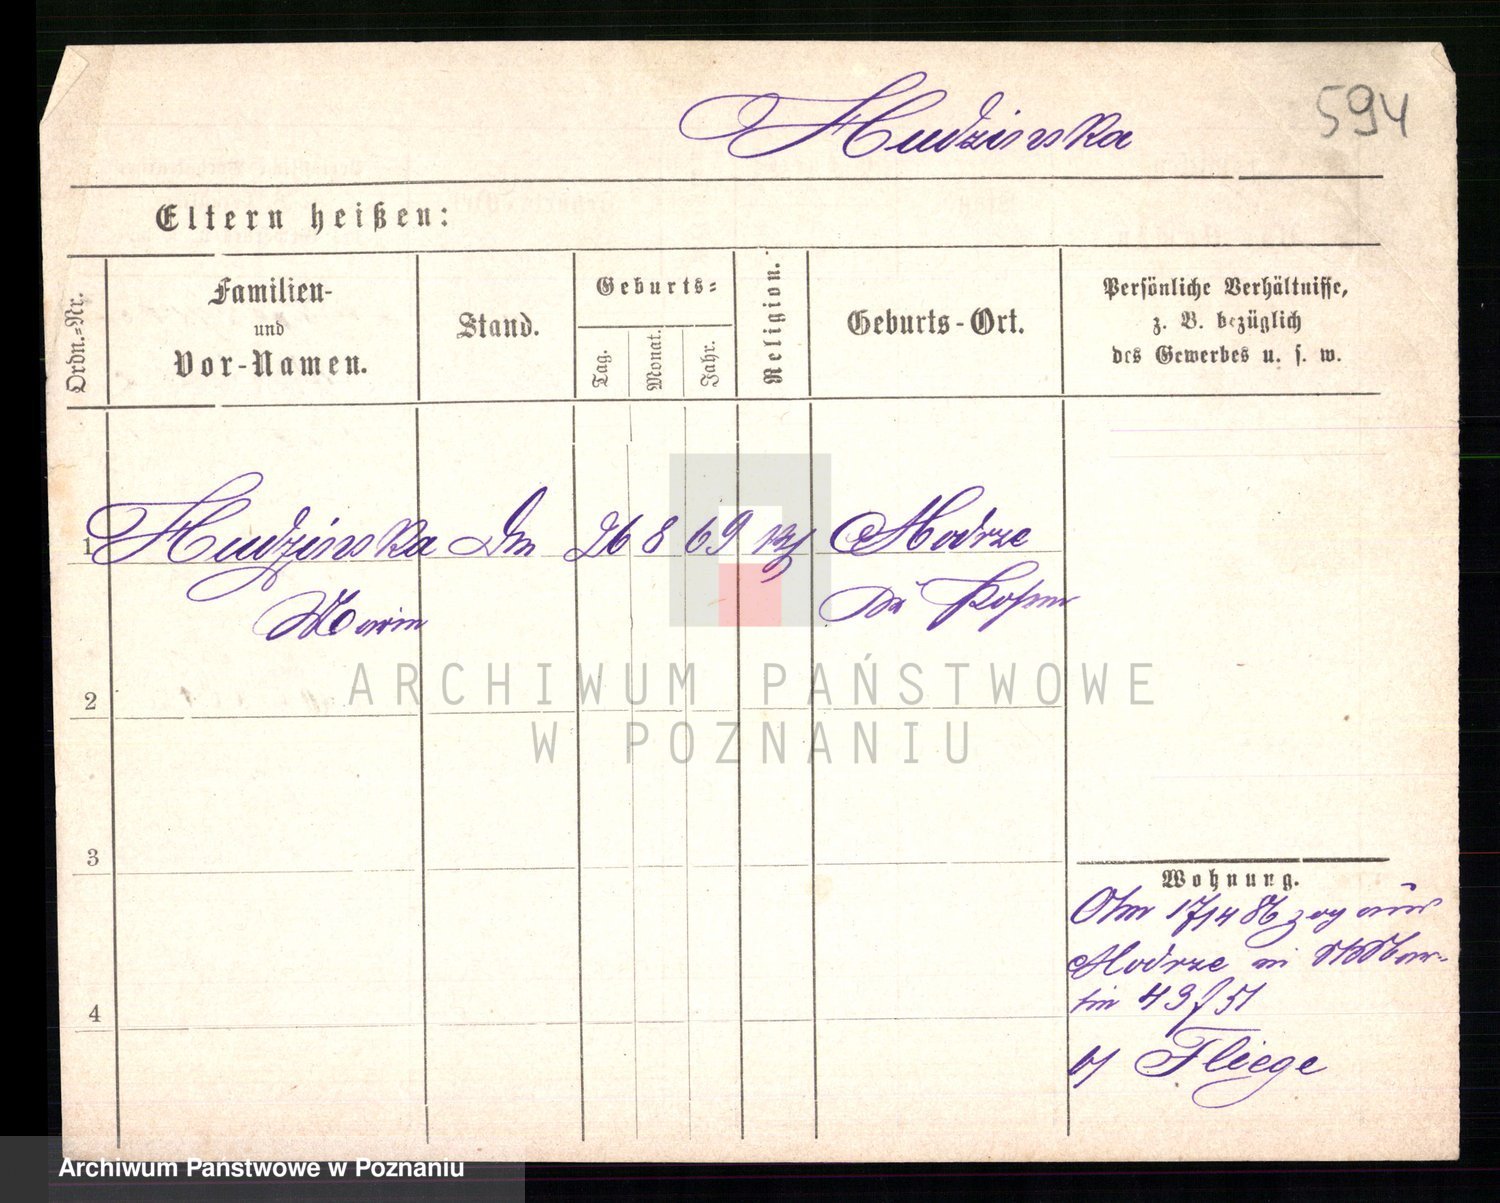 594
Hudzinska
Eltern heißen:
Ordn.-Nr.
Familien-
und
Vor-Namen.
Stand.
Geburts-
Tag.
Monat.
Jahr.
Religion.
Geburts-Ort.
Persönliche Verhältnisse,
z. B. bezüglich
des Gewerbes u. s. w.
1 Hudzinska 26 8 69 Modrze
Posen
2
3
4
Wohnung.
zog aus
Modrze in
tin 43
b/ Fliege
ARCHIWUM PAŃSTWOWE
W POZNANIU
Archiwum Państwowe w Poznaniu